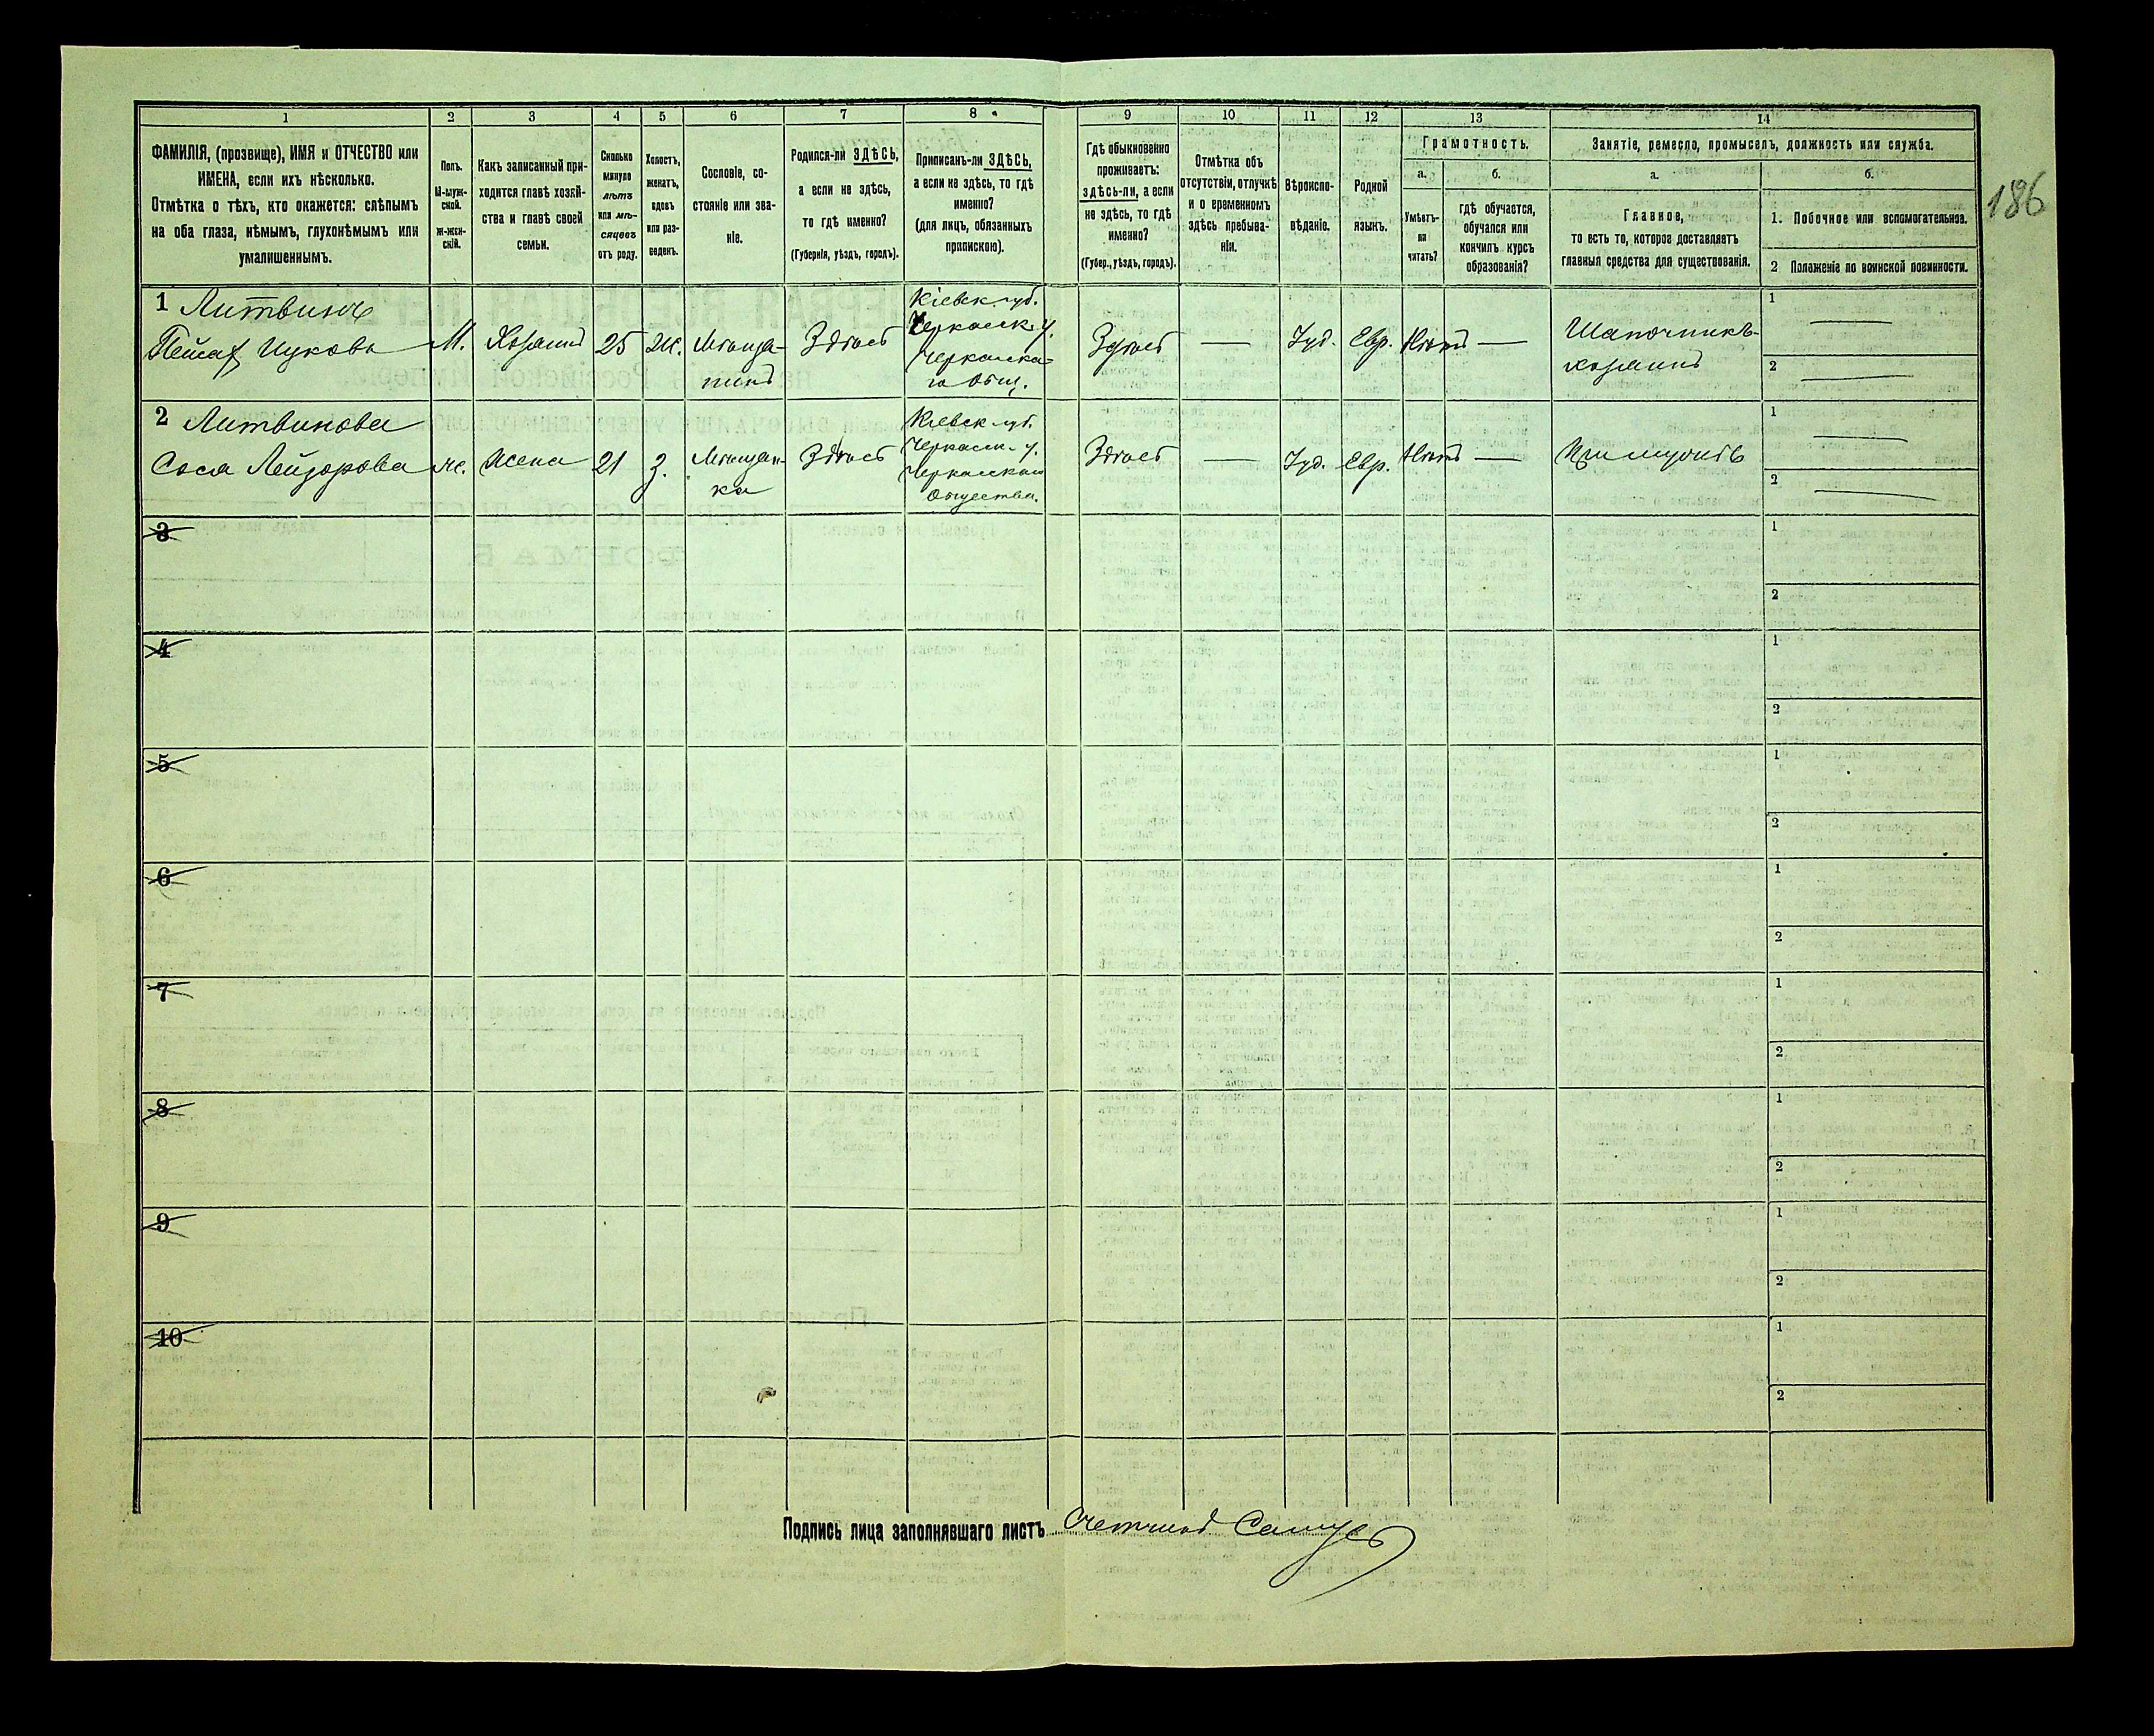 1 2 3 4 5 6 7 8 9 10 11 12 13 14
ФАМИЛІЯ, (прозвище), ИМЯ и ОТЧЕСТВО или
ИМЕНА, если ихъ нѣсколько.
Отмѣтка о тѣхъ, кто окажется: слѣпымъ
на оба глаза, нѣмымъ, глухонѣмымъ или
умалишеннымъ.
Полъ.
М-муж-
ской.
ж-жен-
скій.
Какъ записанный при-
ходится главѣ хозяй-
ства и главѣ своей
семьи.
Сколько
минуло
лѣтъ
или мѣ-
сяцевъ
отъ роду.
Холостъ,
женатъ,
вдовъ
или раз-
веденъ.
Сословіе, со-
стояніе или зва-
ніе.
Родился-ли ЗДѢСЬ,
а если не здѣсь,
то гдѣ именно?
(Губернія, уѣздъ, городъ).
Приписанъ-ли ЗДѢСЬ,
а если не здѣсь, то гдѣ
именно?
(для лицъ, обязанныхъ
припискою).
Гдѣ обыкновенно
проживаетъ:
здѣсь-ли, а если
не здѣсь, то гдѣ
именно?
(Губер., уѣздъ, городъ).
Отмѣтка объ
отсутствіи, отлучкѣ
и о временномъ
здѣсь пребыва-
ніи.
Вѣроиспо-
вѣданіе.
Родной
языкъ.
Грамотность.
а.
Умѣетъ-
ли
читать?
б.
гдѣ обучается,
обучался или
кончилъ курсъ
образованія?
Занятіе, ремесло, промыселъ, должность или служба.
а.
Главное,
то есть то, которое доставляетъ
главныя средства для существованія.
б.
1. Побочное или вспомогательное.
2 Положеніе по воинской повинности.
186
1 Литвинъ
М.
Хозяинъ
25
Ж.
Мѣща-
нинъ
Здѣсь
Кіевск. губ.
Черкаск. у.
Черкаска-
го Общ.
Здѣсь
—
Іуд.
Евр.
Нѣтъ
—
Шапочникъ-
хозяинъ
1 —
2 —
2 Литвинова
Сося Лейзорова
ж.
Жена
21
З.
Мѣщан-
ка
Здѣсь
Кіевск. губ.
Черкасск. у.
Черкасскаго
Общества.
Здѣсь
—
Іуд.
Евр.
Нѣтъ
—
При мужѣ
1 —
2 —
3
1
2
4
1
2
5
1
2
6
1
2
7
1
2
8
1
2
9
1
2
10
1
2
Подпись лица заполнявшаго листъ Счетчикъ